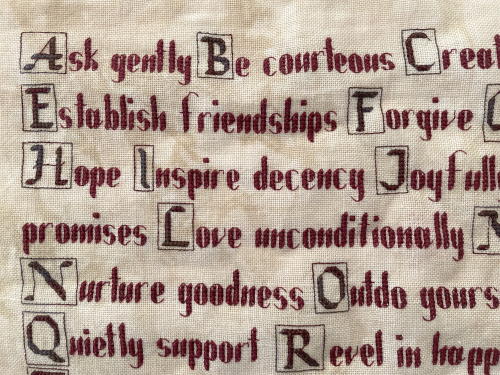 Ask gently Be courteous Creat
Establish friendships Forgive
Hope Inspire decency Joyfull
promises Love unconditionally M
Nurture goodness Outdo yours
Quietly support Revel in happ